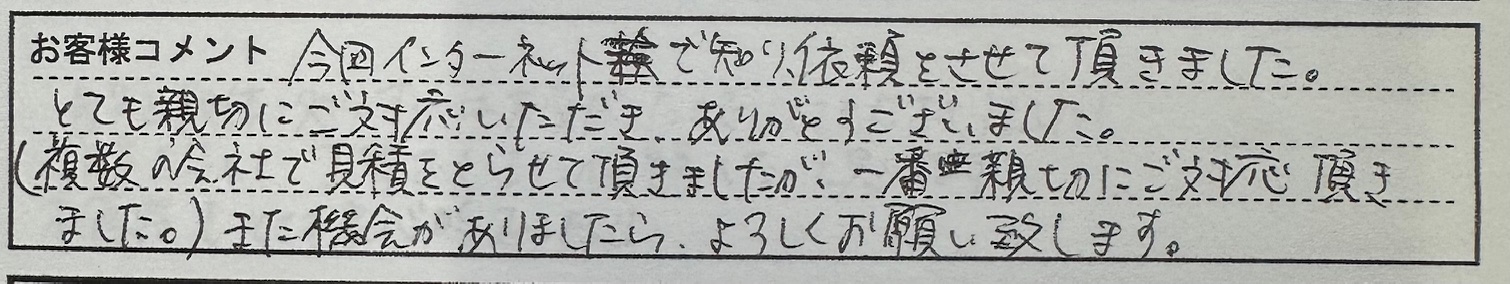 お客様コメント 今回インターネット検で知り、依頼をさせて頂きました。
とても親切にご対応いただき、ありがとうございました。
(複数の会社で見積をとらせて頂きましたが、一番親切にご対応頂き
ました。)また機会がありましたら、よろしくお願い致します。